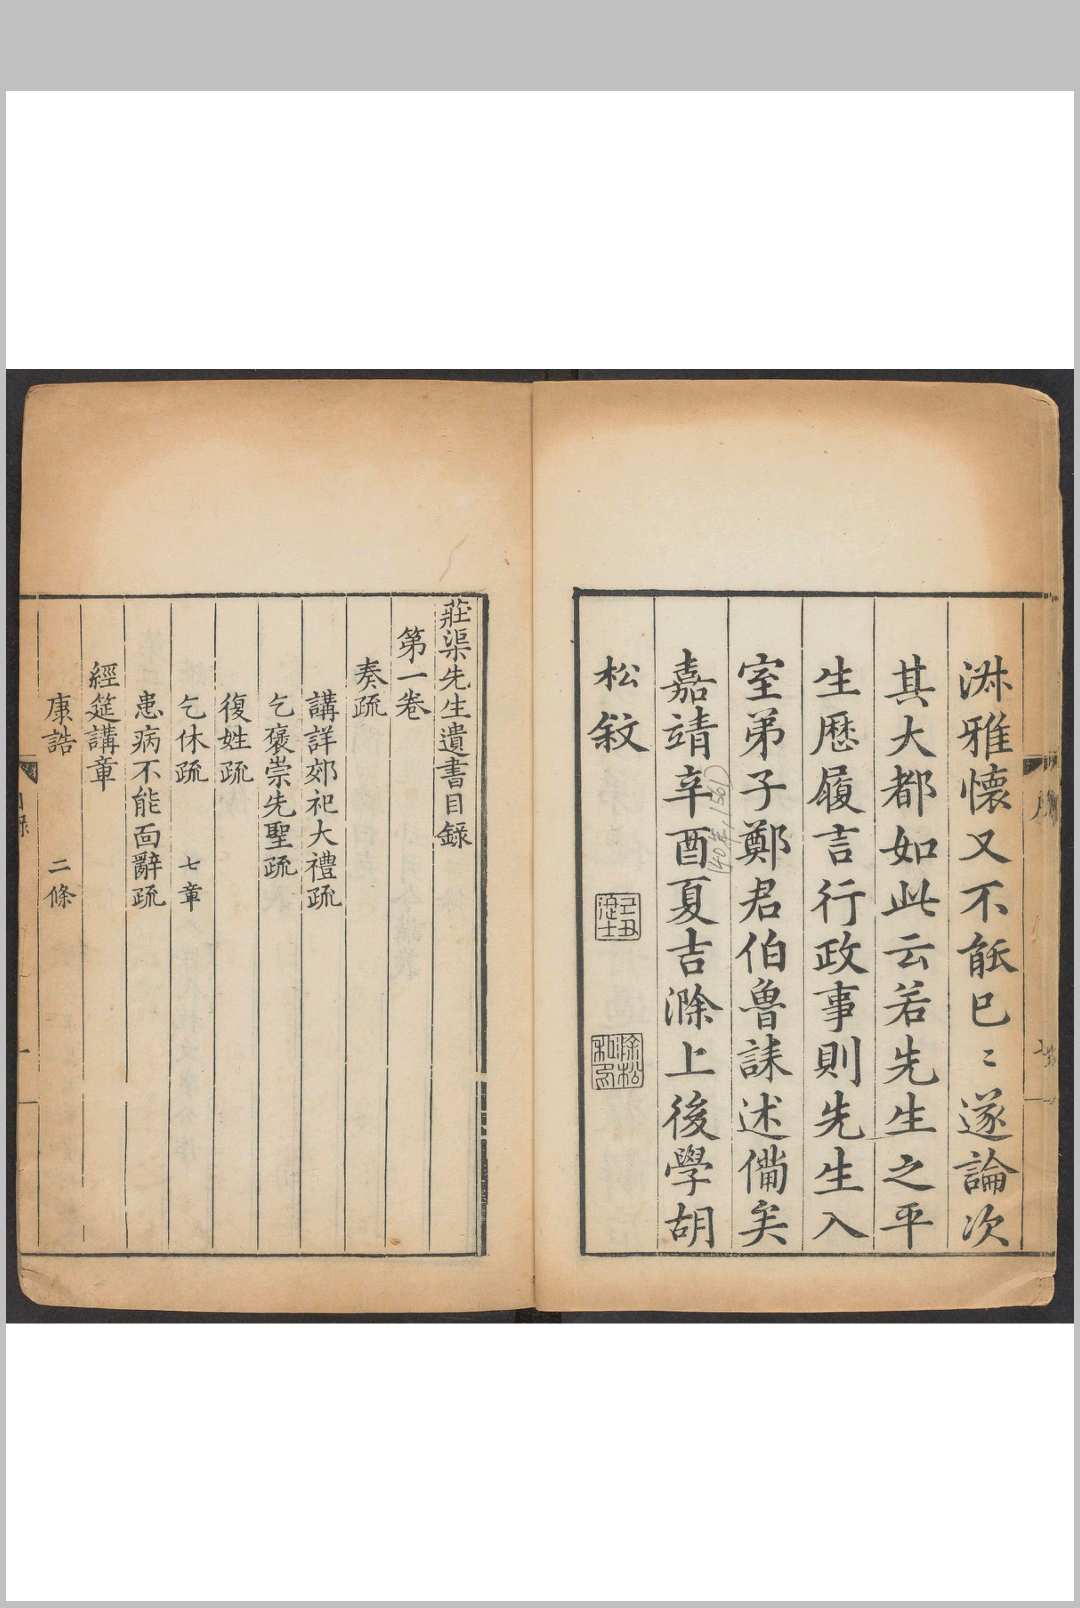 淋雅懷又不能已〻遂論次
其大都如此云若先生之平
生歷履言行政事則先生入
室弟子鄭君伯魯誄述備矣
嘉靖辛酉夏吉滁上後學胡
松敘
40年, 1561
己丑進士
莊渠先生遺書目錄
第一卷
奏疏
講詳郊祀大禮疏
乞襃崇先聖疏
復姓疏
乞休疏 七章
患病不能面辭疏
經筵講章
康誥 二條